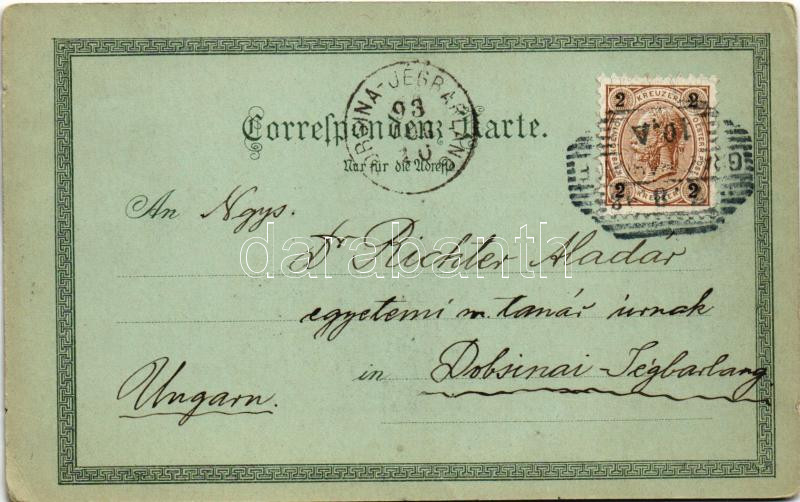 Correspondenz-Karte.
Nur für die Adresse
2 KREUZER 2
2 2
10·A
93
10
An Ngys.
Dr Richter Aladár
egyetemi m. tanár úrnak
in Dobsinai-Jégbarlang
Ungarn.
darabanth